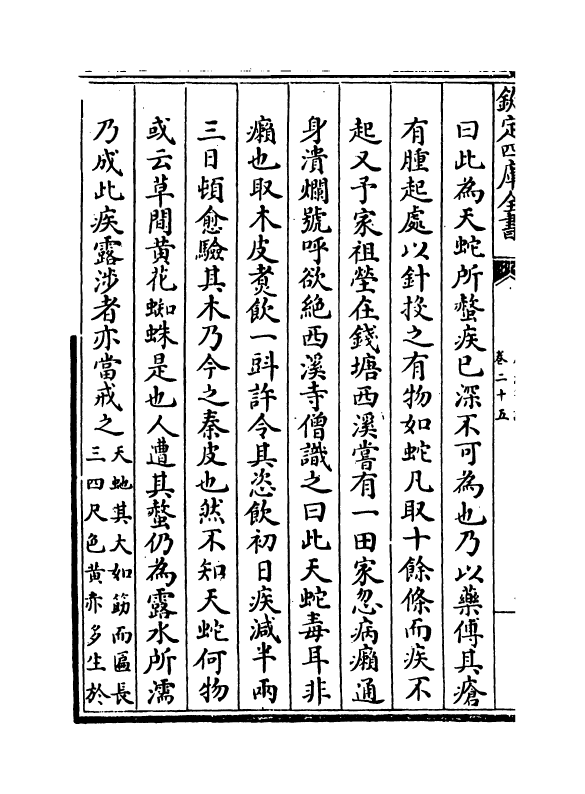 欽定四庫全書
卷二十五
曰此為天蛇所螫疾已深不可為也乃以藥傅其瘡
有腫起處以針投之有物如蛇凡取十餘條而疾不
起又予家祖塋在錢塘西溪嘗有一田家忽病癩通
身潰爛號呼欲絶西溪寺僧識之曰此天蛇毒耳非
癩也取木皮煑飲一㪷許令其恣飲初日疾減半兩
三日頓愈驗其木乃今之秦皮也然不知天蛇何物
或云草間黄花蜘蛛是也人遭其螫仍為露水所濡
乃成此疾露涉者亦當戒之
天虵其大如筯而匾長
三四尺色黄赤多生於